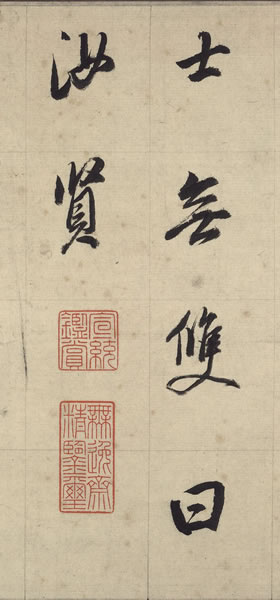 士無雙曰
汝賢
宣統
鑑賞
無逸齋
精鑒璽